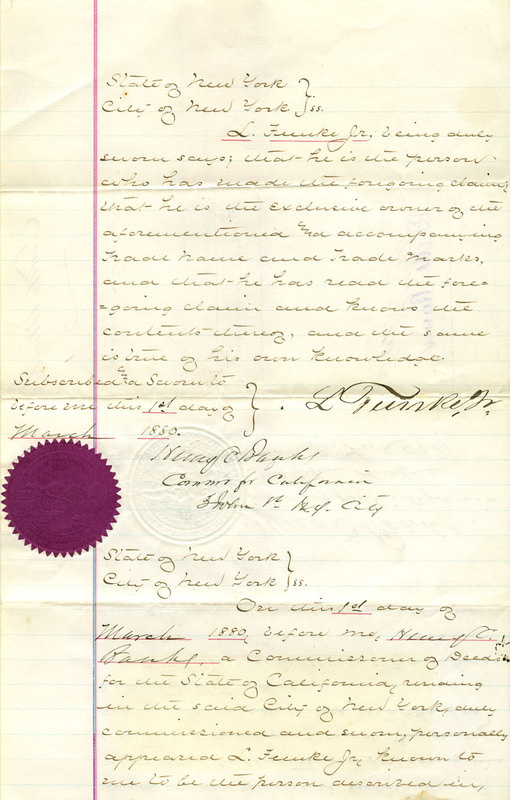 State of New York }
City of New York } ss.
L. Funke Jr, being duly
sworn says; that he is the person
who has made the foregoing claim;
that he is the exclusive owner of the
aforementioned and accompanying
Trade Name and Trade Marks,
and that he has read the fore=
=going claim and knows the
contents thereof, and the same
is true of his own knowledge.
Subscribed & Sworn to
before me this 1st day of
March 1880.
L Funke, Jr.
Henry C Banks
Commr for California
3 John St N.Y. City
State of New York }
City of New York } ss.
On this 1st day of
March 1880, before me, Henry C.
Banks, a Commissioner of Deeds
for the State of California, residing
in the said City of New York, duly
commissioned and sworn, personally
appeared L. Funke Jr, known to
me to be the person described in,